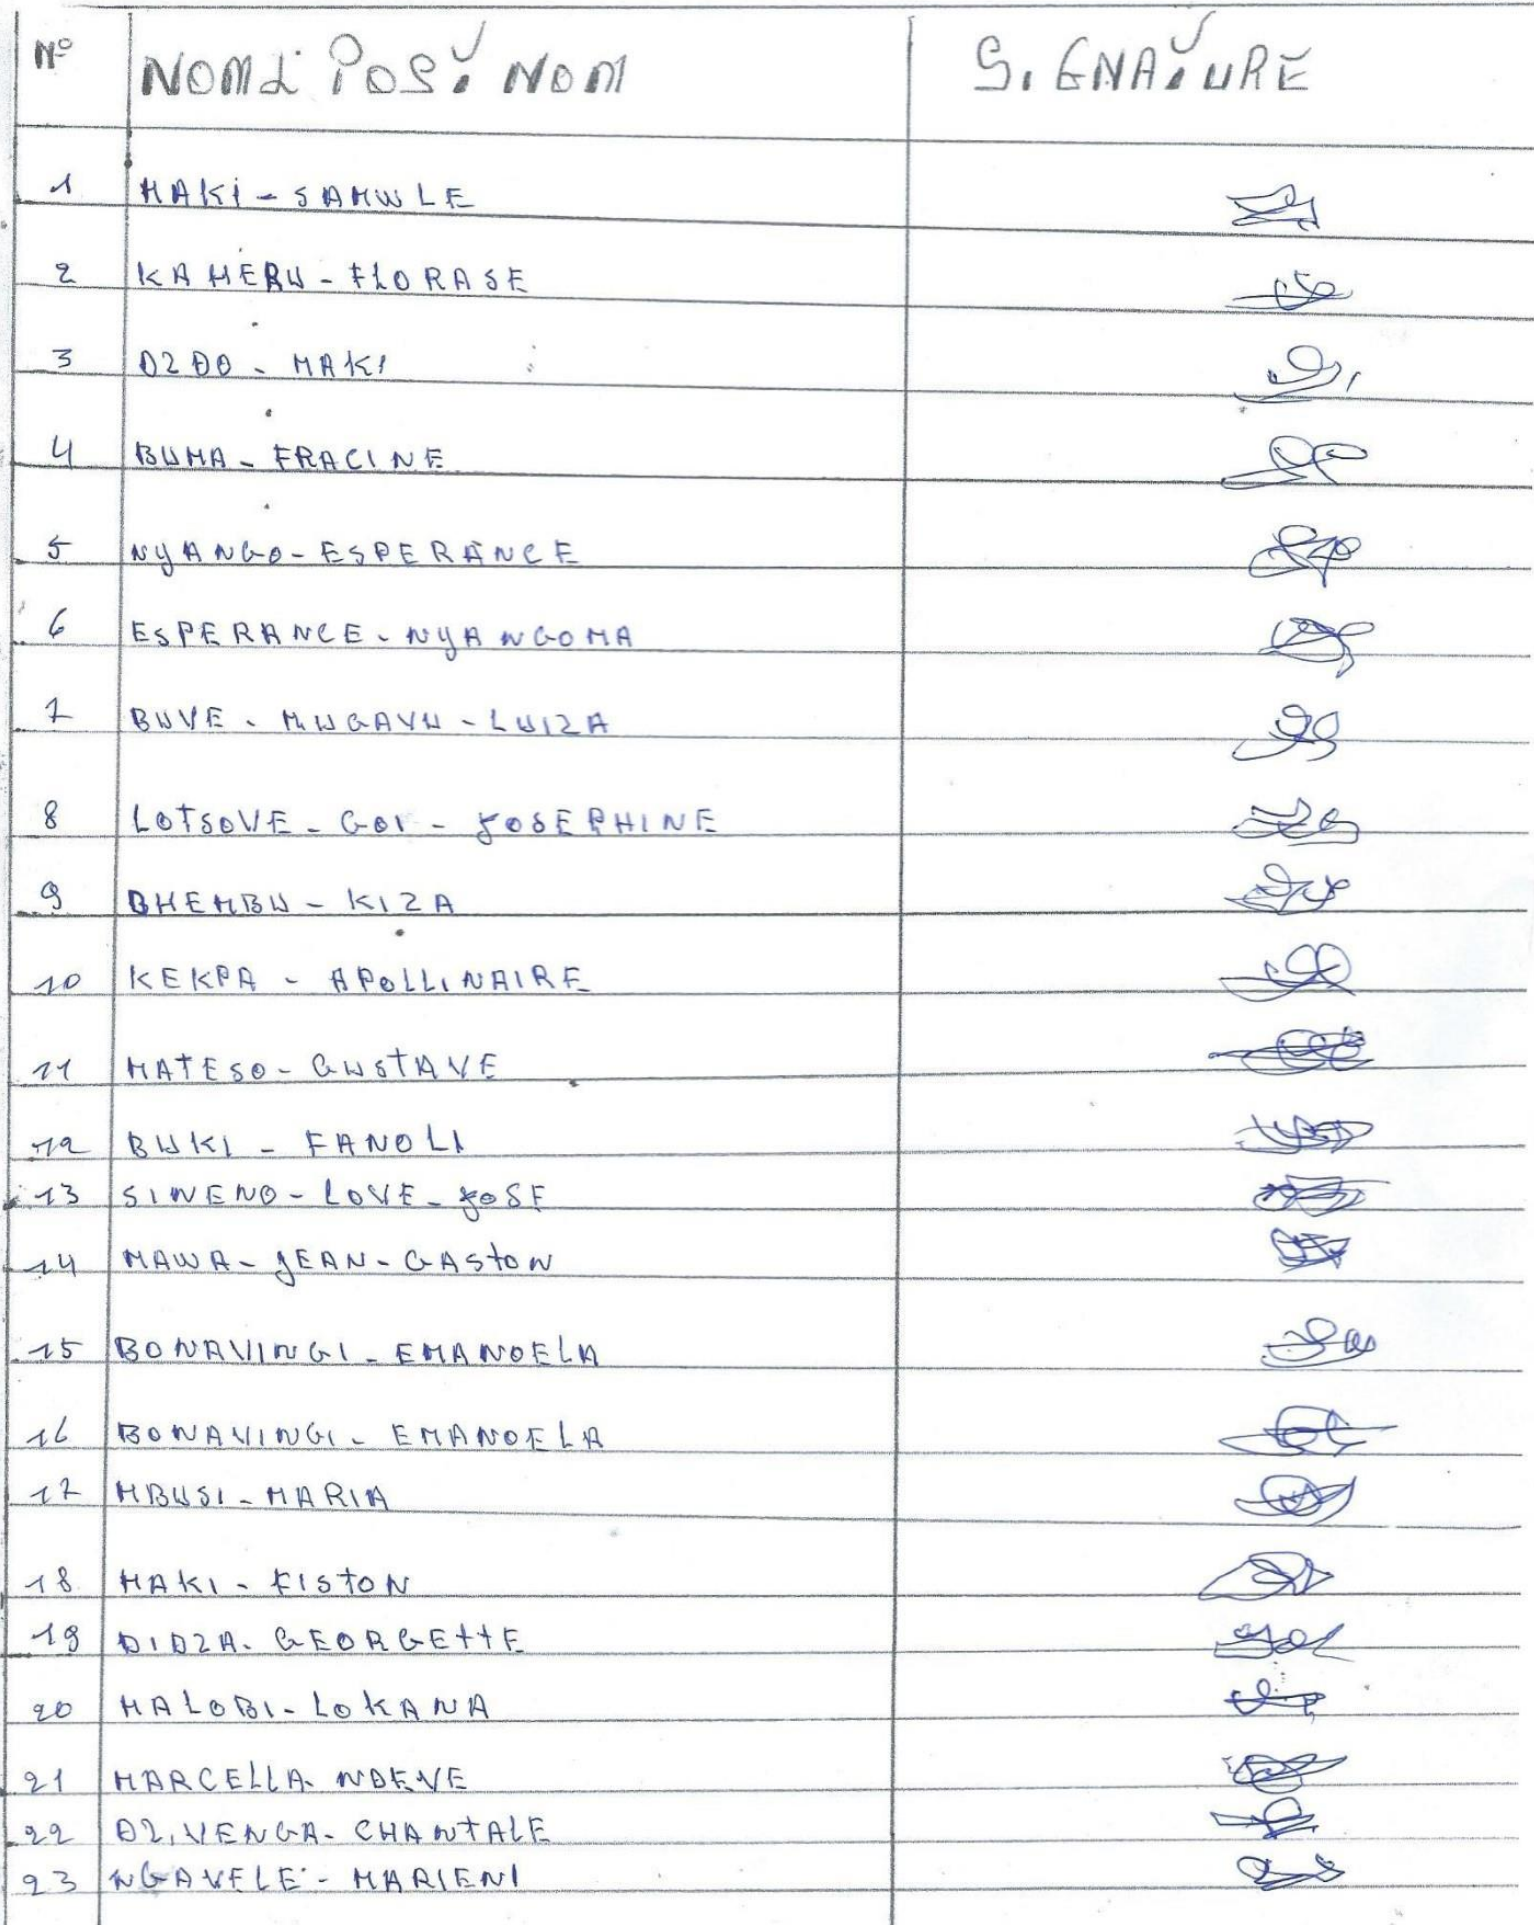 N° NOM & POST NOM SIGNATURE
1 MAKI - SAMULE
2 KAMERU - FLORASE
3 DZDO - MAKI
4 BUMA - FRACINE
5 NYANGO - ESPERANCE
6 ESPERANCE - NYANGOMA
7 BUVE - MUGAVU - LUIZA
8 LOTSOVE - GOI - JOSEPHINE
9 BHEMBU - KIZA
10 KEKPA - APOLLINAIRE
11 MATESO - GUSTAVE
12 BUKI - FANOLI
13 SINENO - LOVE - JOSE
14 MAWA - JEAN - GASTON
15 BONAVINGI - EMANOELA
16 BONAVINGI - EMANOELA
17 MBUSI - MARIA
18 MAKI - FISTON
19 DIDZA - GEORGETTE
20 MALOBI - LOKANA
21 MARCELLA - NDEVE
22 DZ,VENGA - CHANTALE
23 NGAVELE - MARIENI